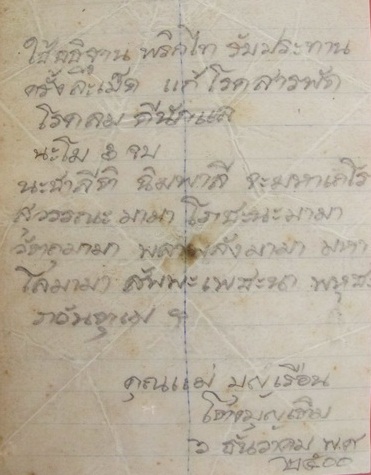 ใช้อธิฐาน พริกไท รับประทาน
ครั้งละเม็ด แก้โรคสารพัด
โรคลม
นะโม ๓ จบ
นะชาลีติ ฉิมพาลี จะมหาเถโร
สุวรรณะมามา โภชะนะมามา
วัตถุมามา พลาพลังมามา มหา
โภมามา สัพพะเพชะนา พหูชะ
ภวันตุเม ฯ
คุณแม่ บุญเรือน
โตงบุญเติม
ธันวาคม พ.ศ
๒๕๐๐